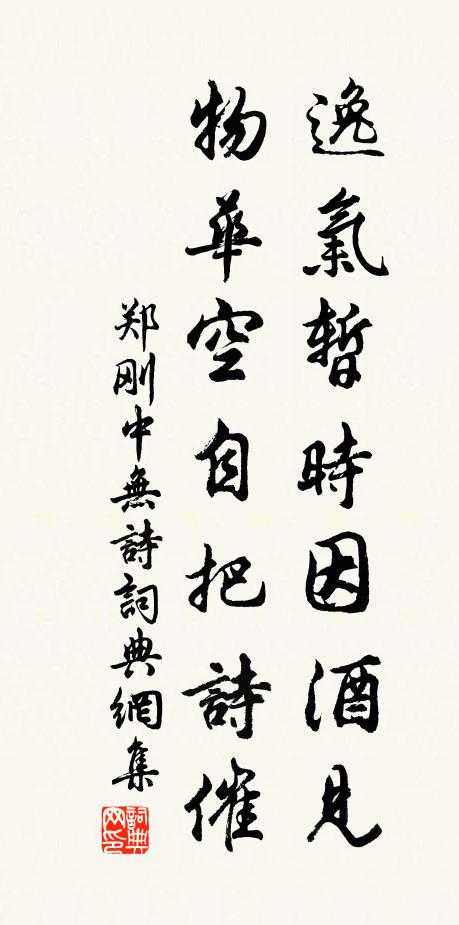 逸氣暫時因酒見
物華空自把詩催
郑刚中無詩詞典網集
詞典网印